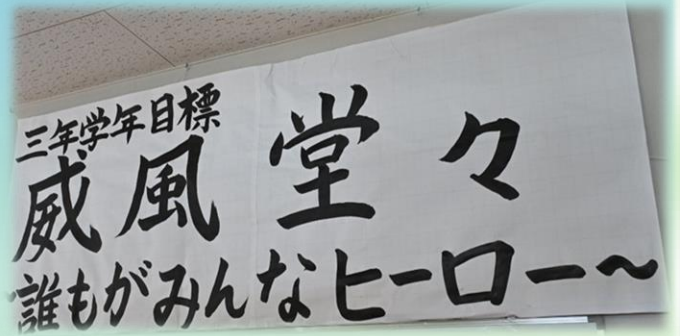 三年学年目標
威風堂々
~誰もがみんなヒーロー~